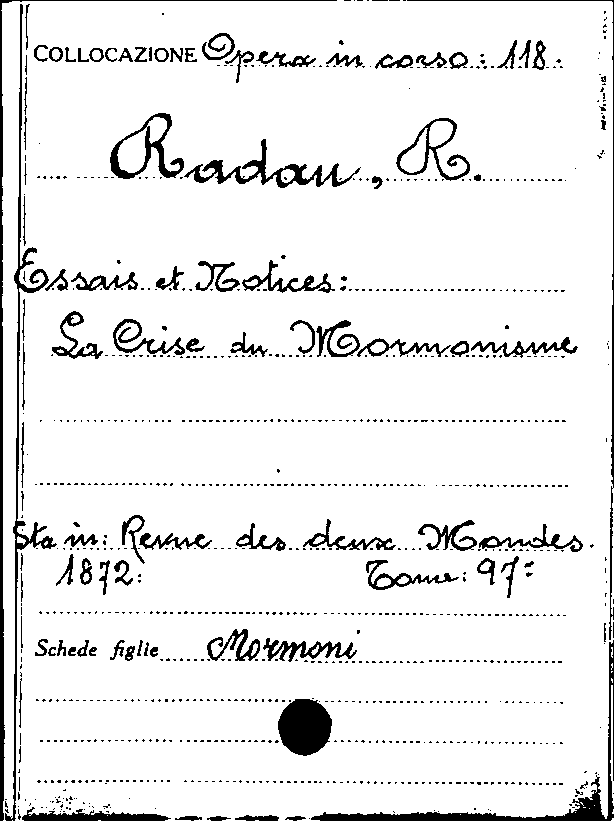 COLLOCAZIONE Opera in corso: 118.
Radau, R.
Essais et Notices:
La Crise du Mormonisme
Sta in: Revue des deux Mondes.
1872: Tome: 97:
Schede figlie Mormoni